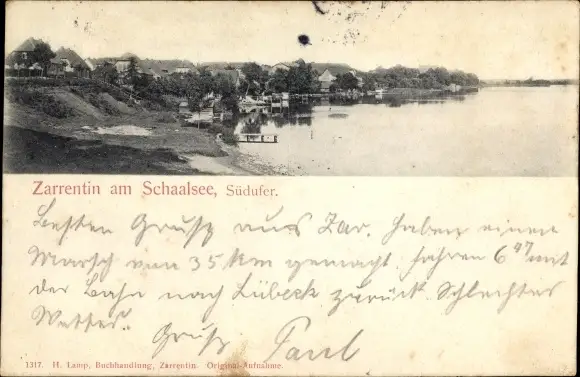 Zarrentin am Schaalsee, Südufer.
Besten Gruß aus Zar. Haben einen
Marsch von 35 Km gemacht fahren 6⁴⁷ mit
der Bahn nach Lübeck zurück. Schlechtes
Wetter.
Gruß Paul
1317. H. Lamp, Buchhandlung, Zarrentin. Original-Aufnahme.